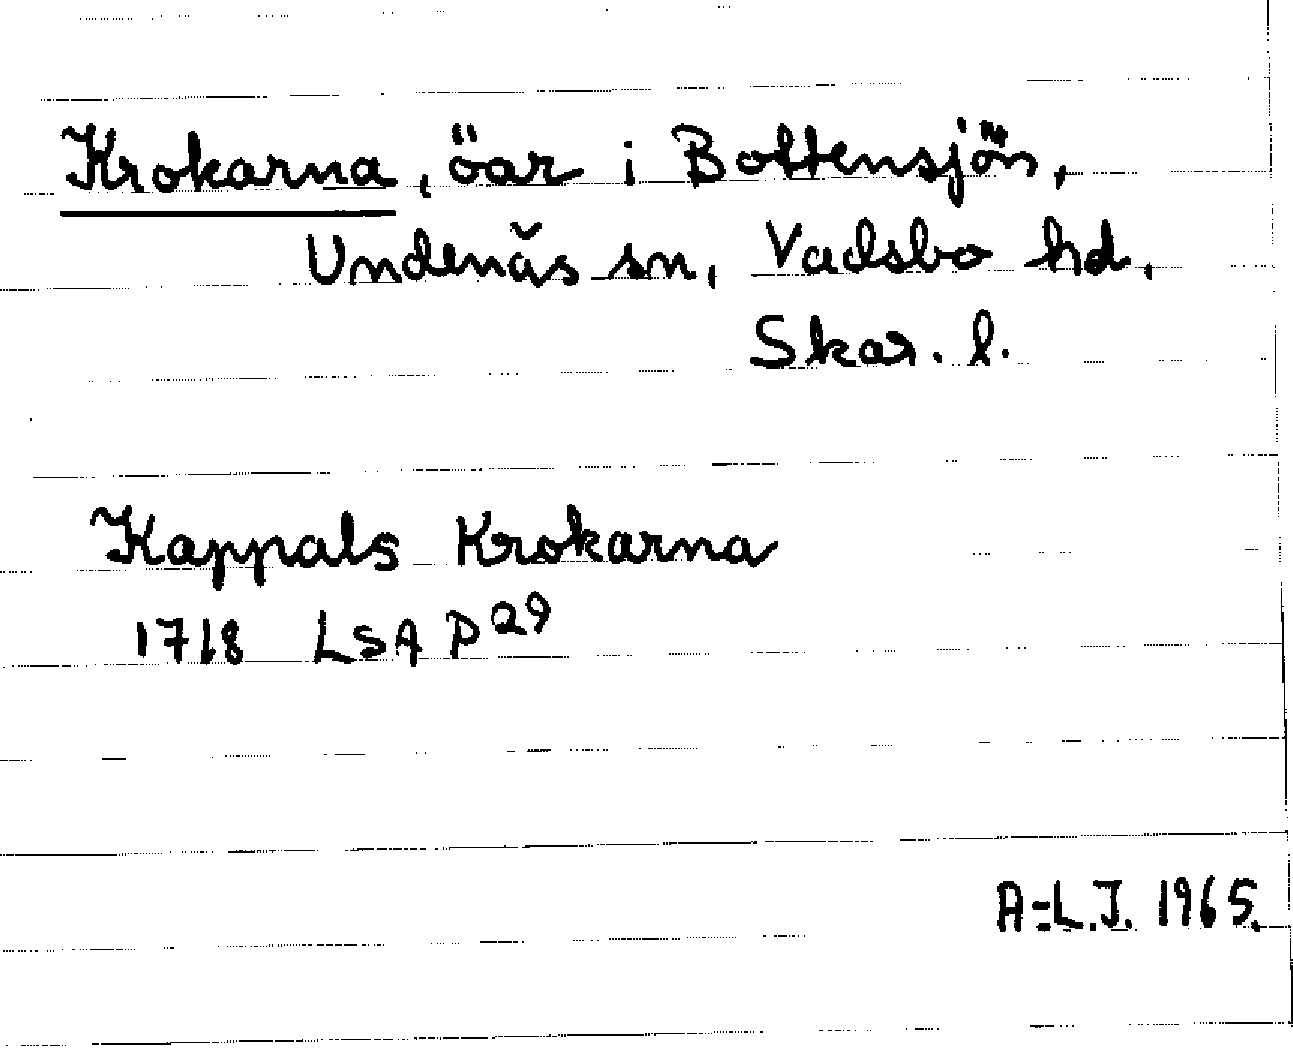 Krokarna, öar i Bottensjön,
Undenäs sn, Vadsbo hd,
Skar. l.
Kappals Krokarna
1718 LSA P29
A-L.J. 1965.